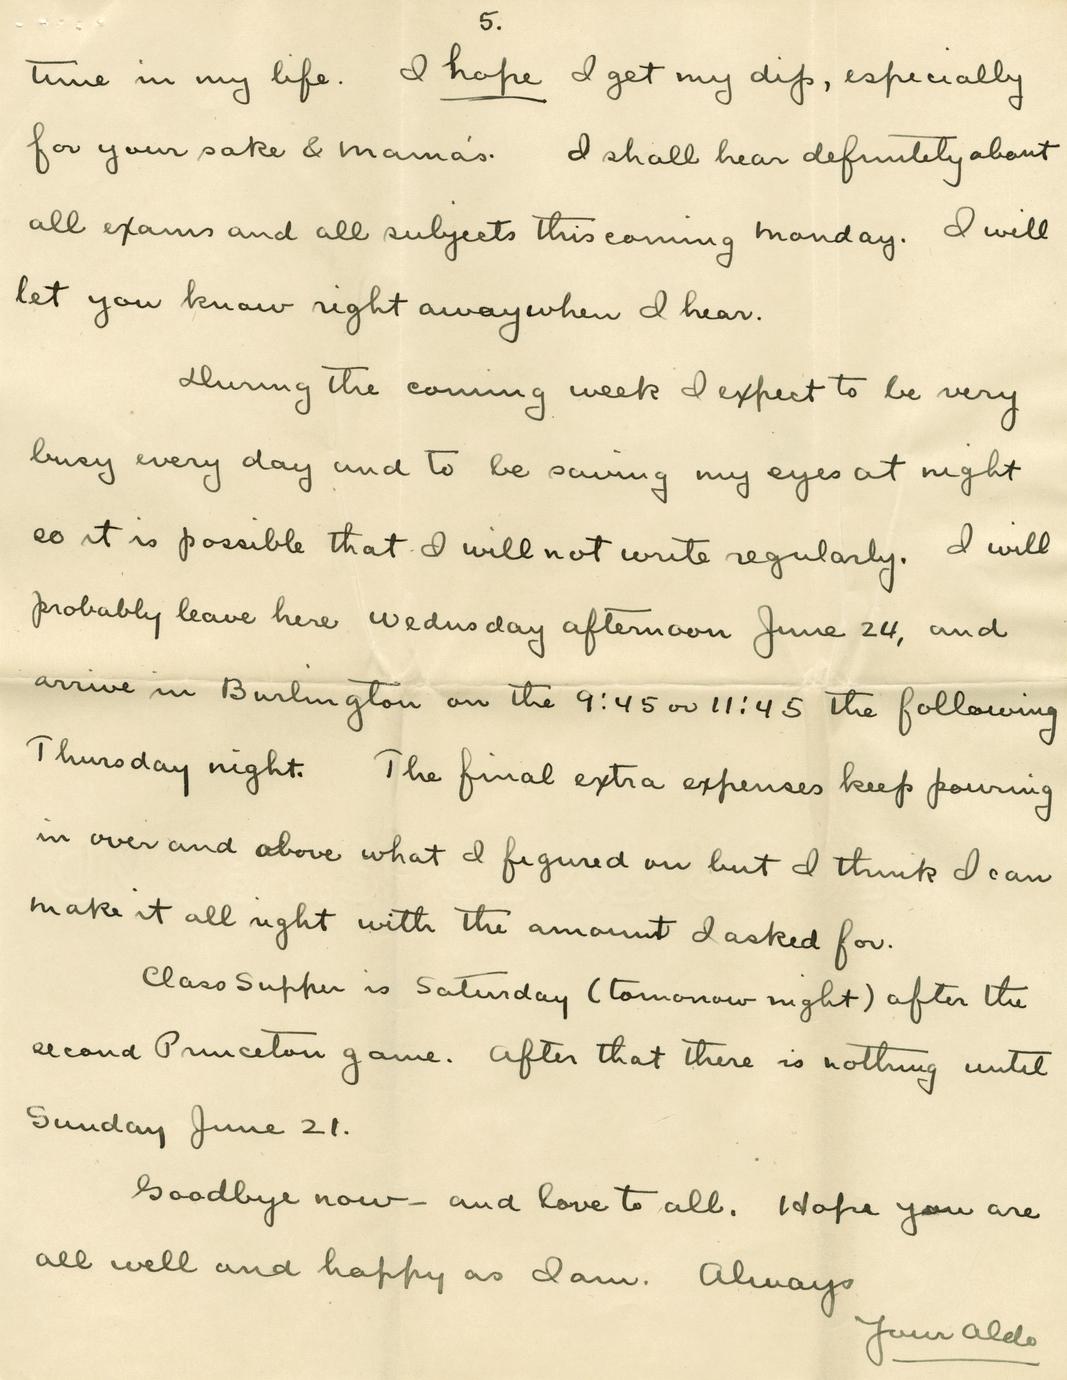 5.
time in my life. I hope I get my dip, especially
for your sake & Mama's. I shall hear definitely about
all exams and all subjects this coming Monday. I will
let you know right away when I hear.
During the coming week I expect to be very
busy every day and to be saving my eyes at night
so it is possible that I will not write regularly. I will
probably leave here Wednesday afternoon June 24, and
arrive in Burlington on the 9:45 or 11:45 the following
Thursday night. The final extra expenses keep pouring
in over and above what I figured on but I think I can
make it all right with the amount I asked for.
Class Supper is Saturday (tomorrow night) after the
second Princeton game. After that there is nothing until
Sunday June 21.
Goodbye now — and love to all. Hope you are
all well and happy as I am. Always
Your Aldo